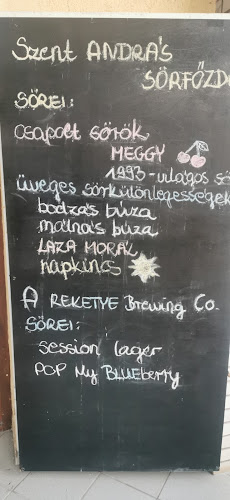 Szent ANDRÁS
SÖRFŐZD
SÖREI:
csapolt sörök
MEGGY
1993-világos sö
üveges sörkülönlegességek
bodzás búza
málnás búza
LAZA MORÁL
napkincs
A REKETYE Brewing Co.
SÖREI:
session lager
POP My BLUEberry